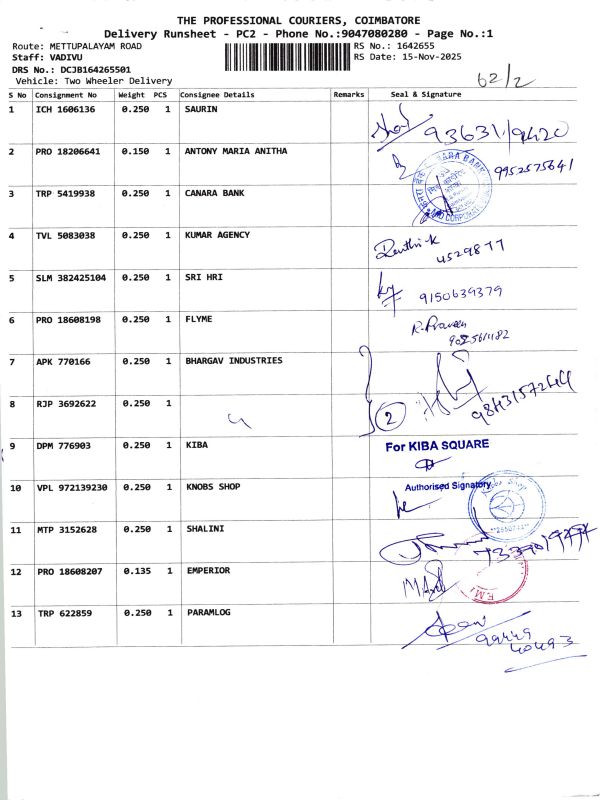 THE PROFESSIONAL COURIERS, COIMBATORE
Delivery Runsheet - PC2 - Phone No.:9047080280 - Page No.:1
Route: METTUPALAYAM ROAD RS No.: 1642655
Staff: VADIVU RS Date: 15-Nov-2025
DRS No.: DCJB164265501
Vehicle: Two Wheeler Delivery
62/2
S No Consignment No Weight PCS Consignee Details Remarks Seal & Signature
1 ICH 1606136 0.250 1 SAURIN
93631/9420
2 PRO 18206641 0.150 1 ANTONY MARIA ANITHA
9952575641
CANARA BANK
3 TRP 5419938 0.250 1 CANARA BANK
4 TVL 5083038 0.250 1 KUMAR AGENCY
4529877
5 SLM 382425104 0.250 1 SRI HRI
9150639379
6 PRO 18608198 0.250 1 FLYME
R. Praveen
7 APK 770166 0.250 1 BHARGAV INDUSTRIES
8 RJP 3692622 0.250 1
2
9 DPM 776903 0.250 1 KIBA For KIBA SQUARE
10 VPL 972139230 0.250 1 KNOBS SHOP Authorised Signatory
11 MTP 3152628 0.250 1 SHALINI
12 PRO 18608207 0.135 1 EMPERIOR
13 TRP 622859 0.250 1 PARAMLOG
99449
40493